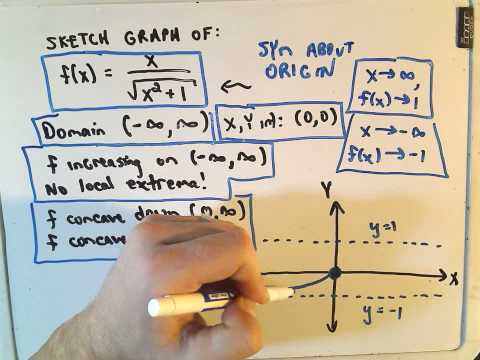 SKETCH GRAPH OF:
f(x) = x / √(x² + 1)
SYM ABOUT
ORIGIN
x → ∞,
f(x) → 1
x → -∞
f(x) → -1
Domain (-∞, ∞)
X, Y int: (0,0)
f increasing on (-∞, ∞)
No local extrema!
f concave down (0, ∞)
f concave
Y
y=1
X
y=-1